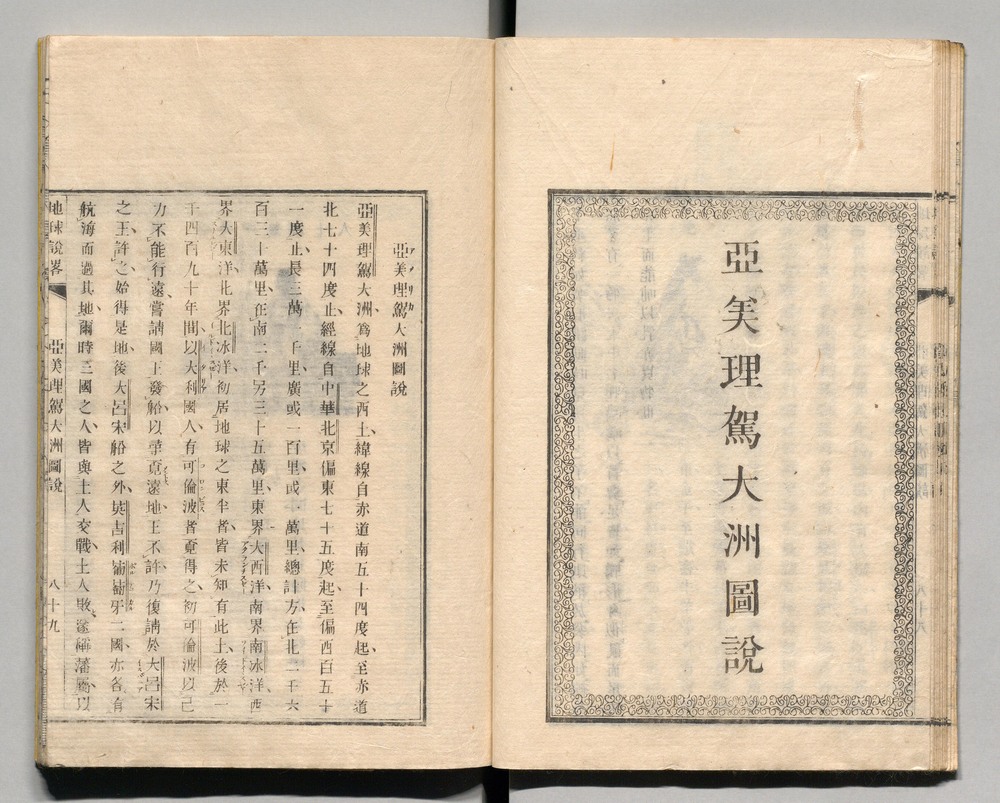 亞美理駕大洲圖說
亞美理駕大洲圖說
亞美理駕大洲爲地球之西土緯線自赤道南五十四度起至赤道
北七十四度止經線自中華北京偏東七十五度起至偏西百五十
一度止長三萬一千里廣或一百里或一萬里總計方在北三千六
百三十萬里在南二千另三十五萬里東界大西洋南界南冰洋西
界大東洋北界北冰洋初居地球之東半者皆未知有此土後於一
千四百九十年間以大利國人有可倫波者覔得之初可倫波以己
力不能行遠嘗請國王發船以尋東遠地王不許乃復請於大呂宋
之王許之始得是地後大呂宋船之外英吉利葡萄牙二國亦各有
航海而過其地爾時三國之人皆與土人交戰土人敗遂稱藩屬以
地球說畧 亞美理駕大洲圖說 八十九